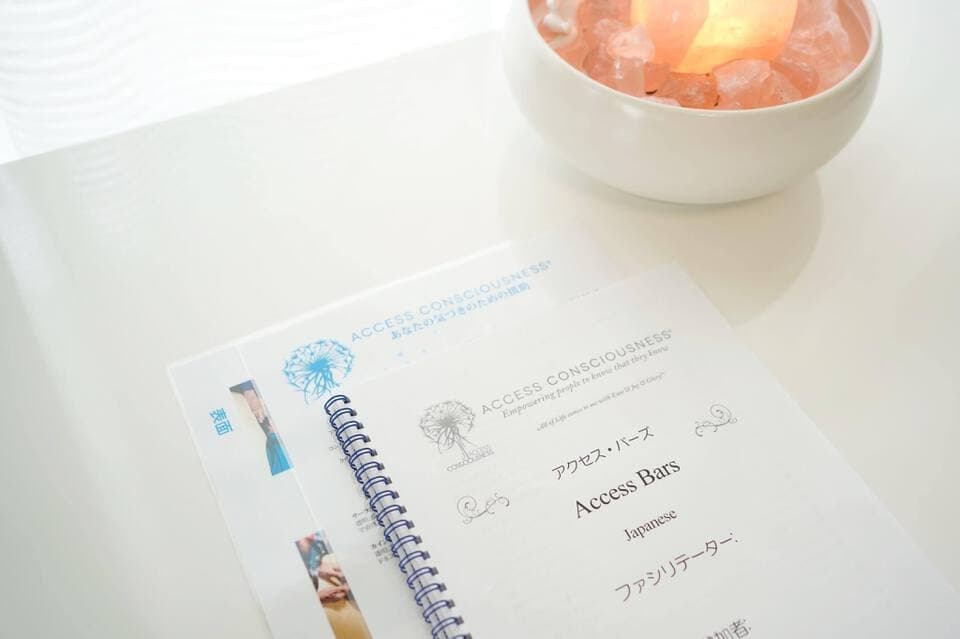 ACCESS CONSCIOUSNESS®
あなたの気づきのための援助
表面
ACCESS CONSCIOUSNESS®
Empowering people to know that they know
All of Life comes to me with Ease & Joy & Glory!™
ACCESS
CONSCIOUSNESS
アクセス・バーズ
Access Bars
Japanese
ファシリテーター:
加者: